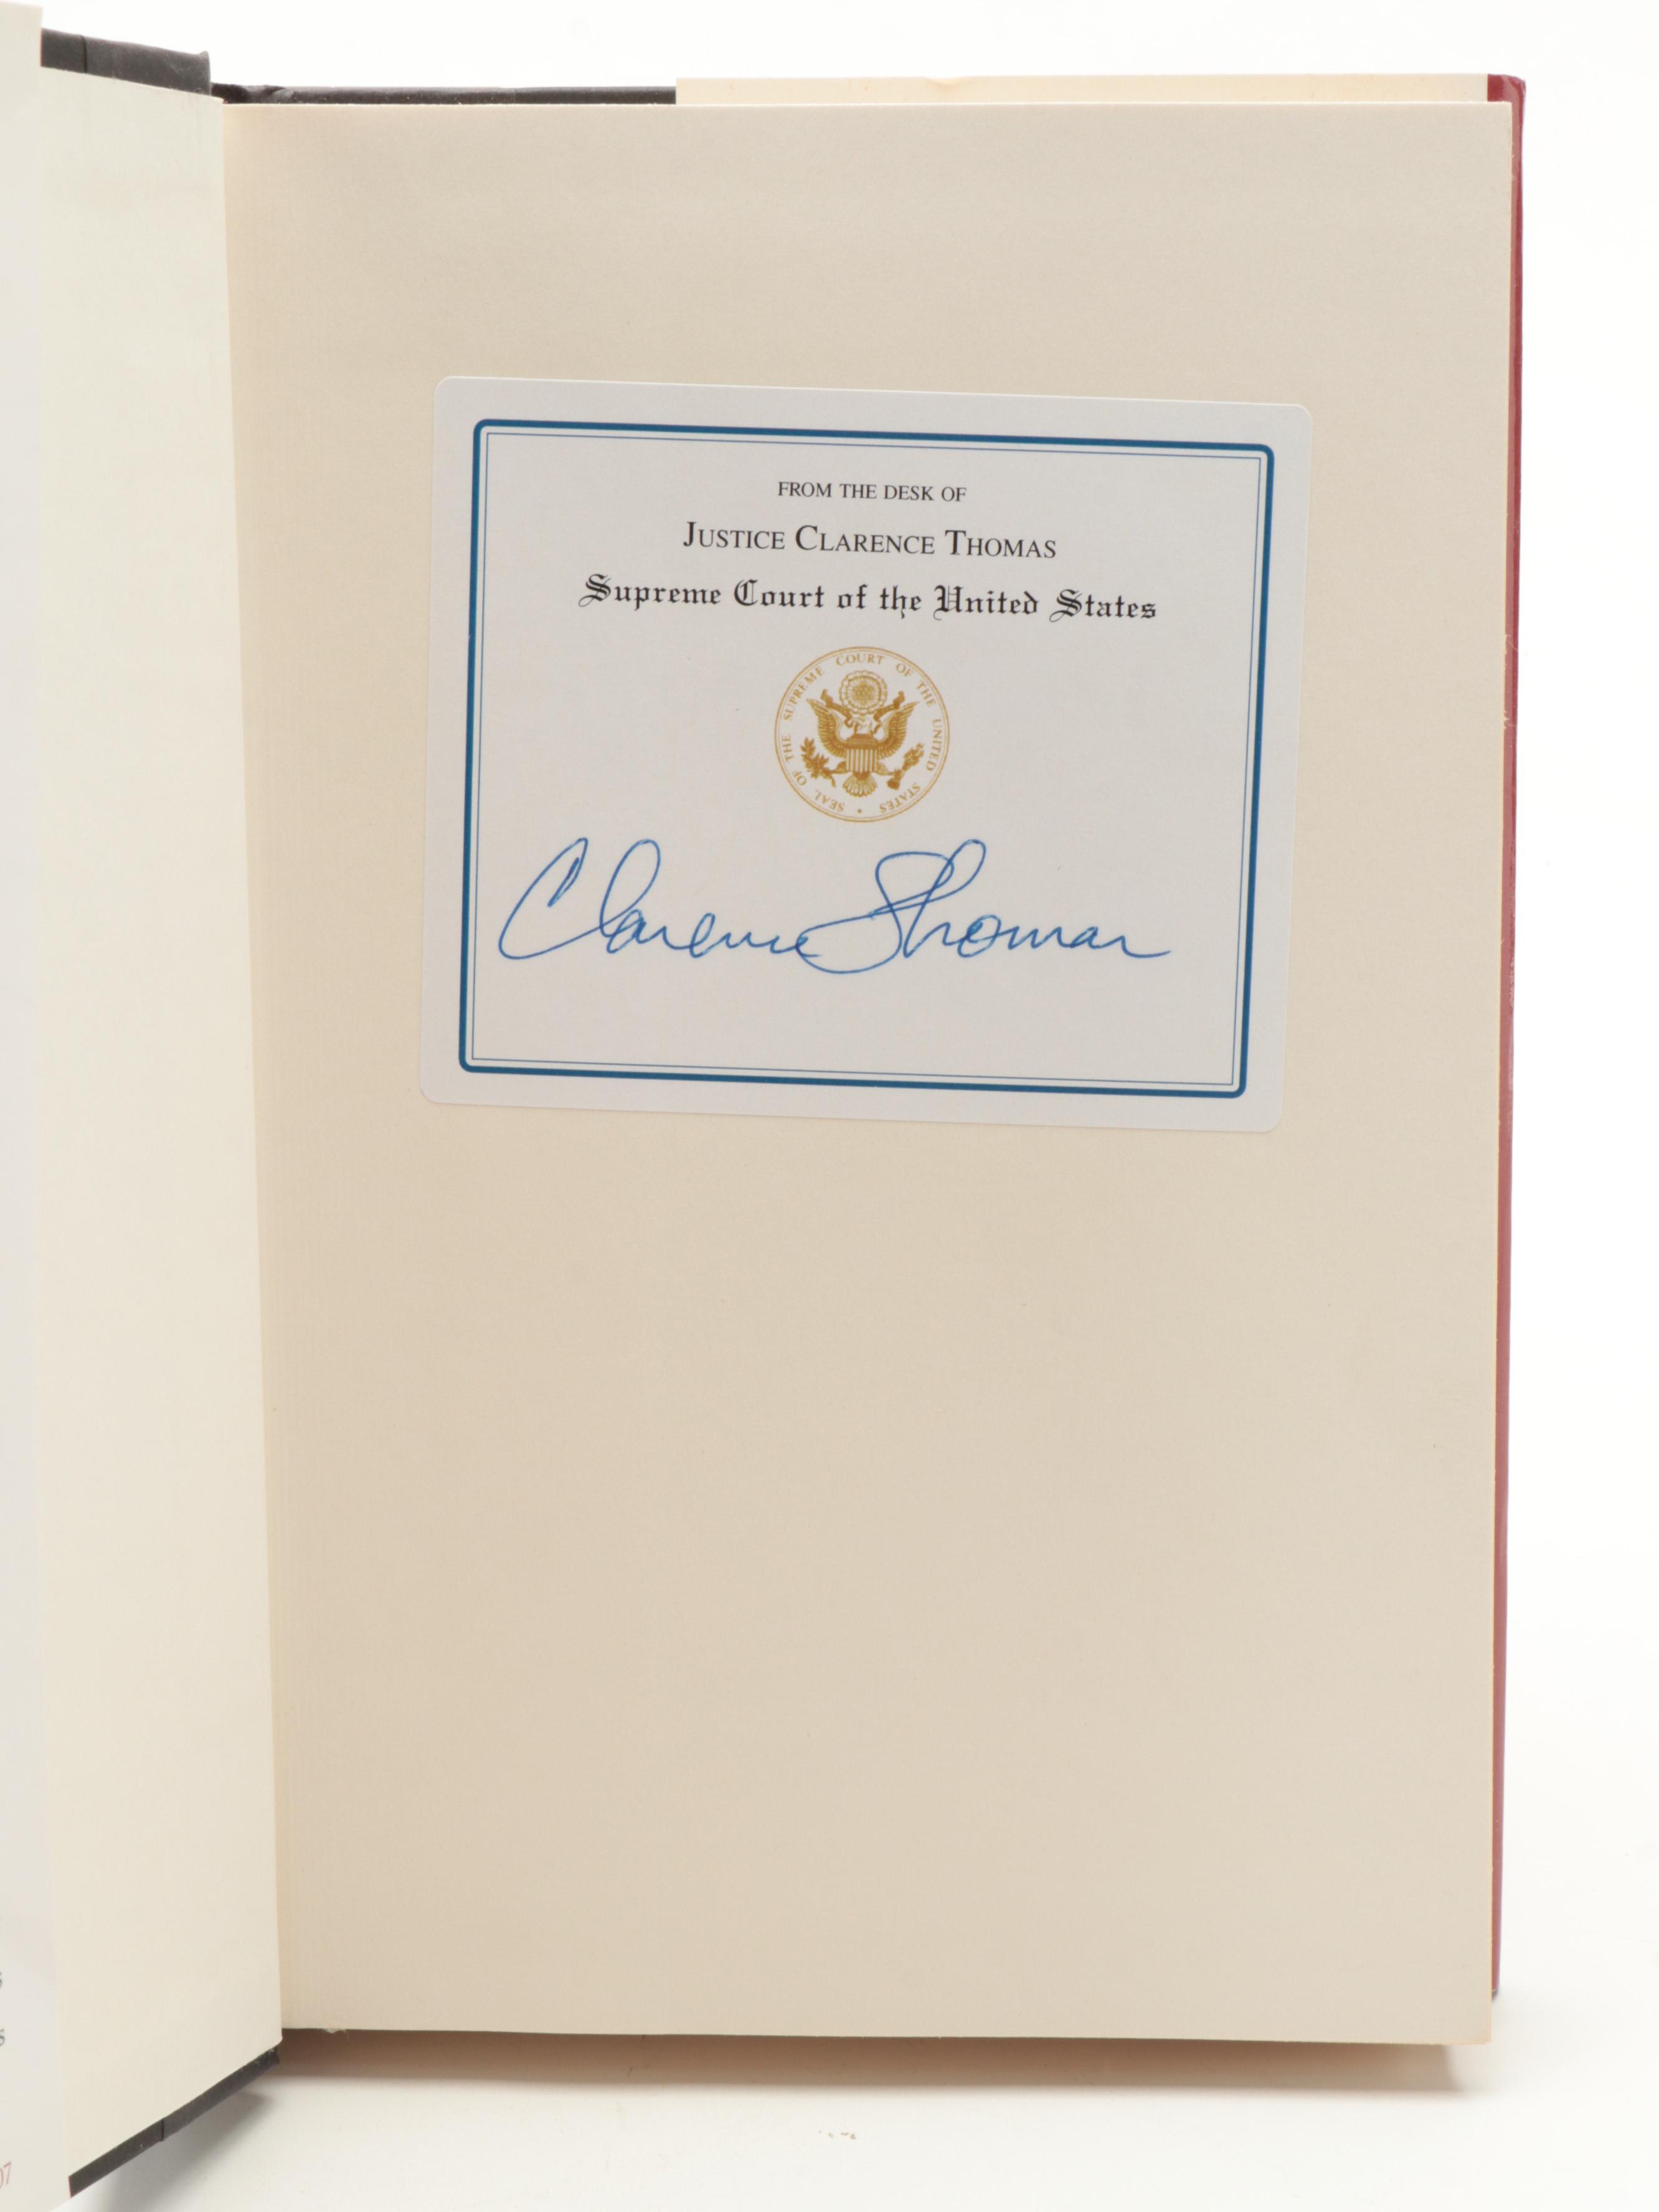 FROM THE DESK OF
JUSTICE CLARENCE THOMAS
Supreme Court of the United States
SEAL OF THE SUPREME COURT OF THE UNITED STATES
Clarence Thomas
s
s
07